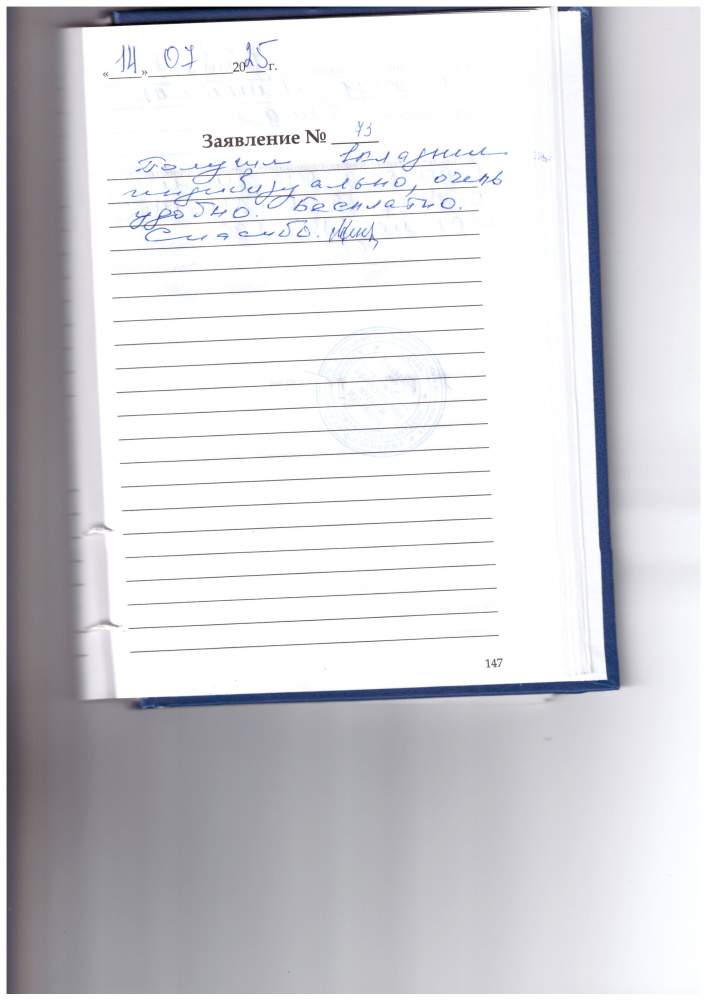 «14» 07 2025 г.
Заявление № 73
Получил вкладыш
индивидуально, очень
удобно. Бесплатно.
Спасибо.
147